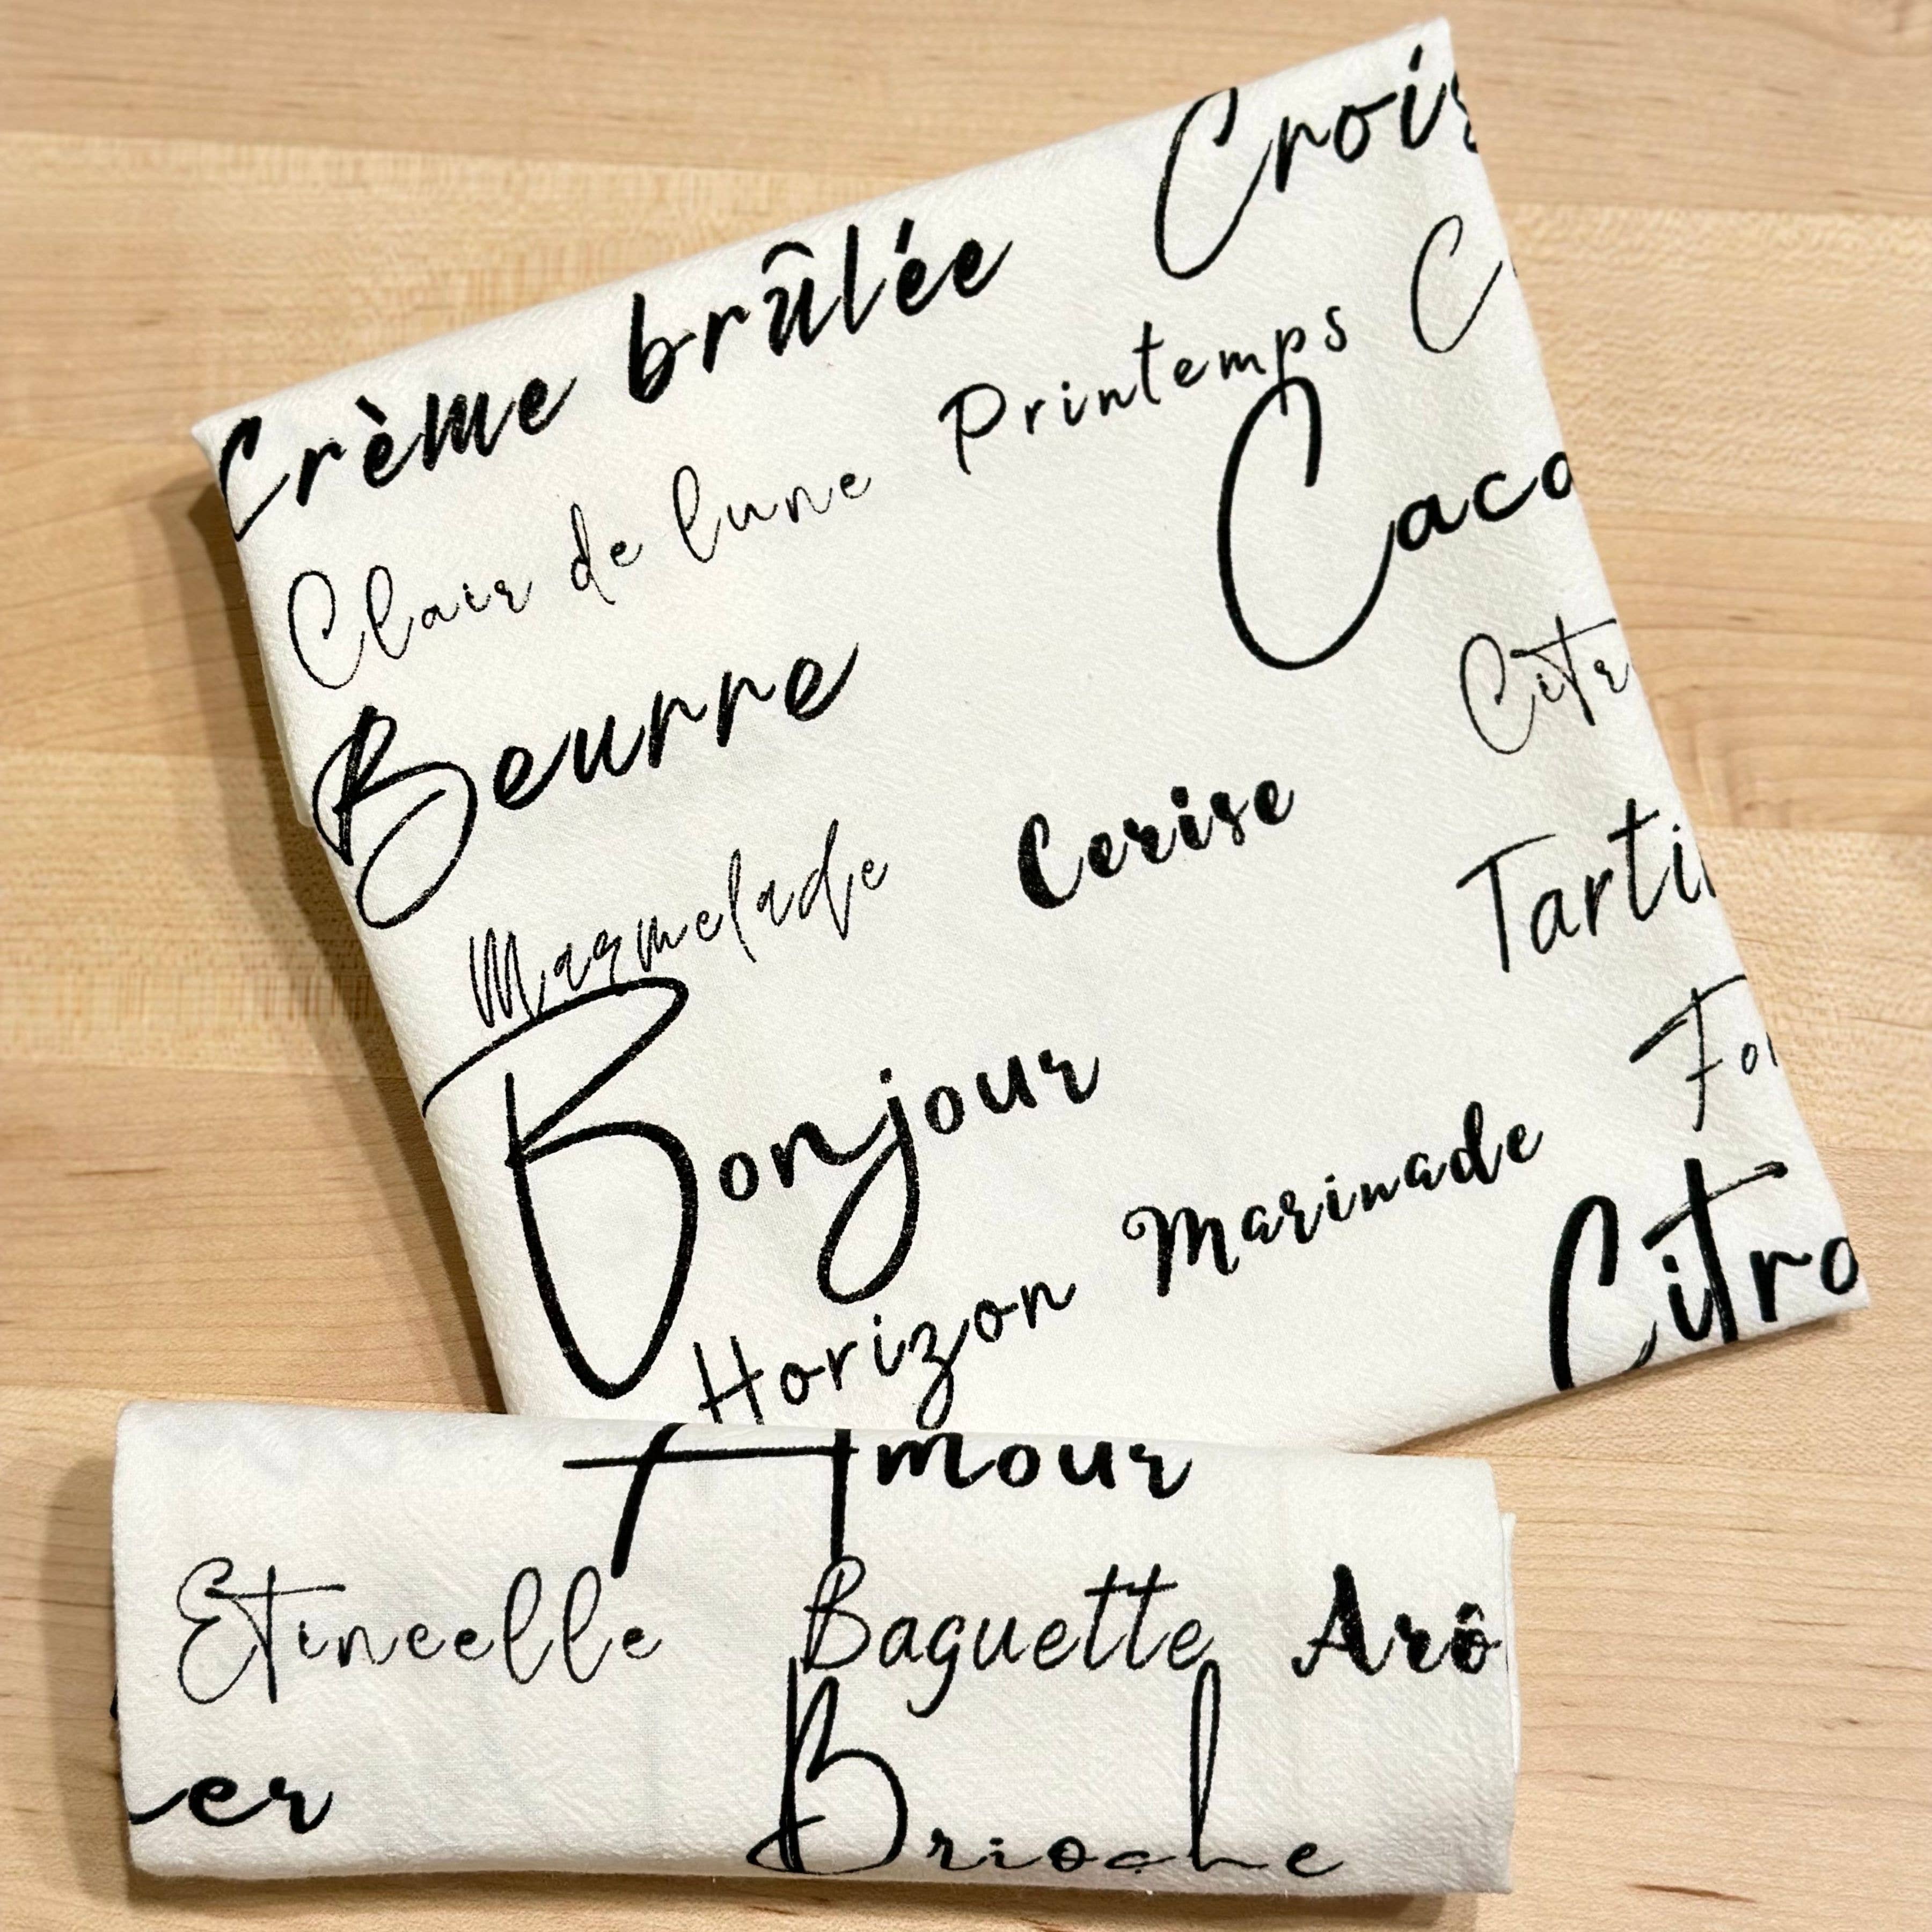 Crème brûlée Crois
Clair de lune Printemps C
Beurre Caco
Citr
Marmelade Cerise Tarti
Bonjour Fo
Horizon Marinade Citro
Amour
Etincelle Baguette Arô
er Brioche